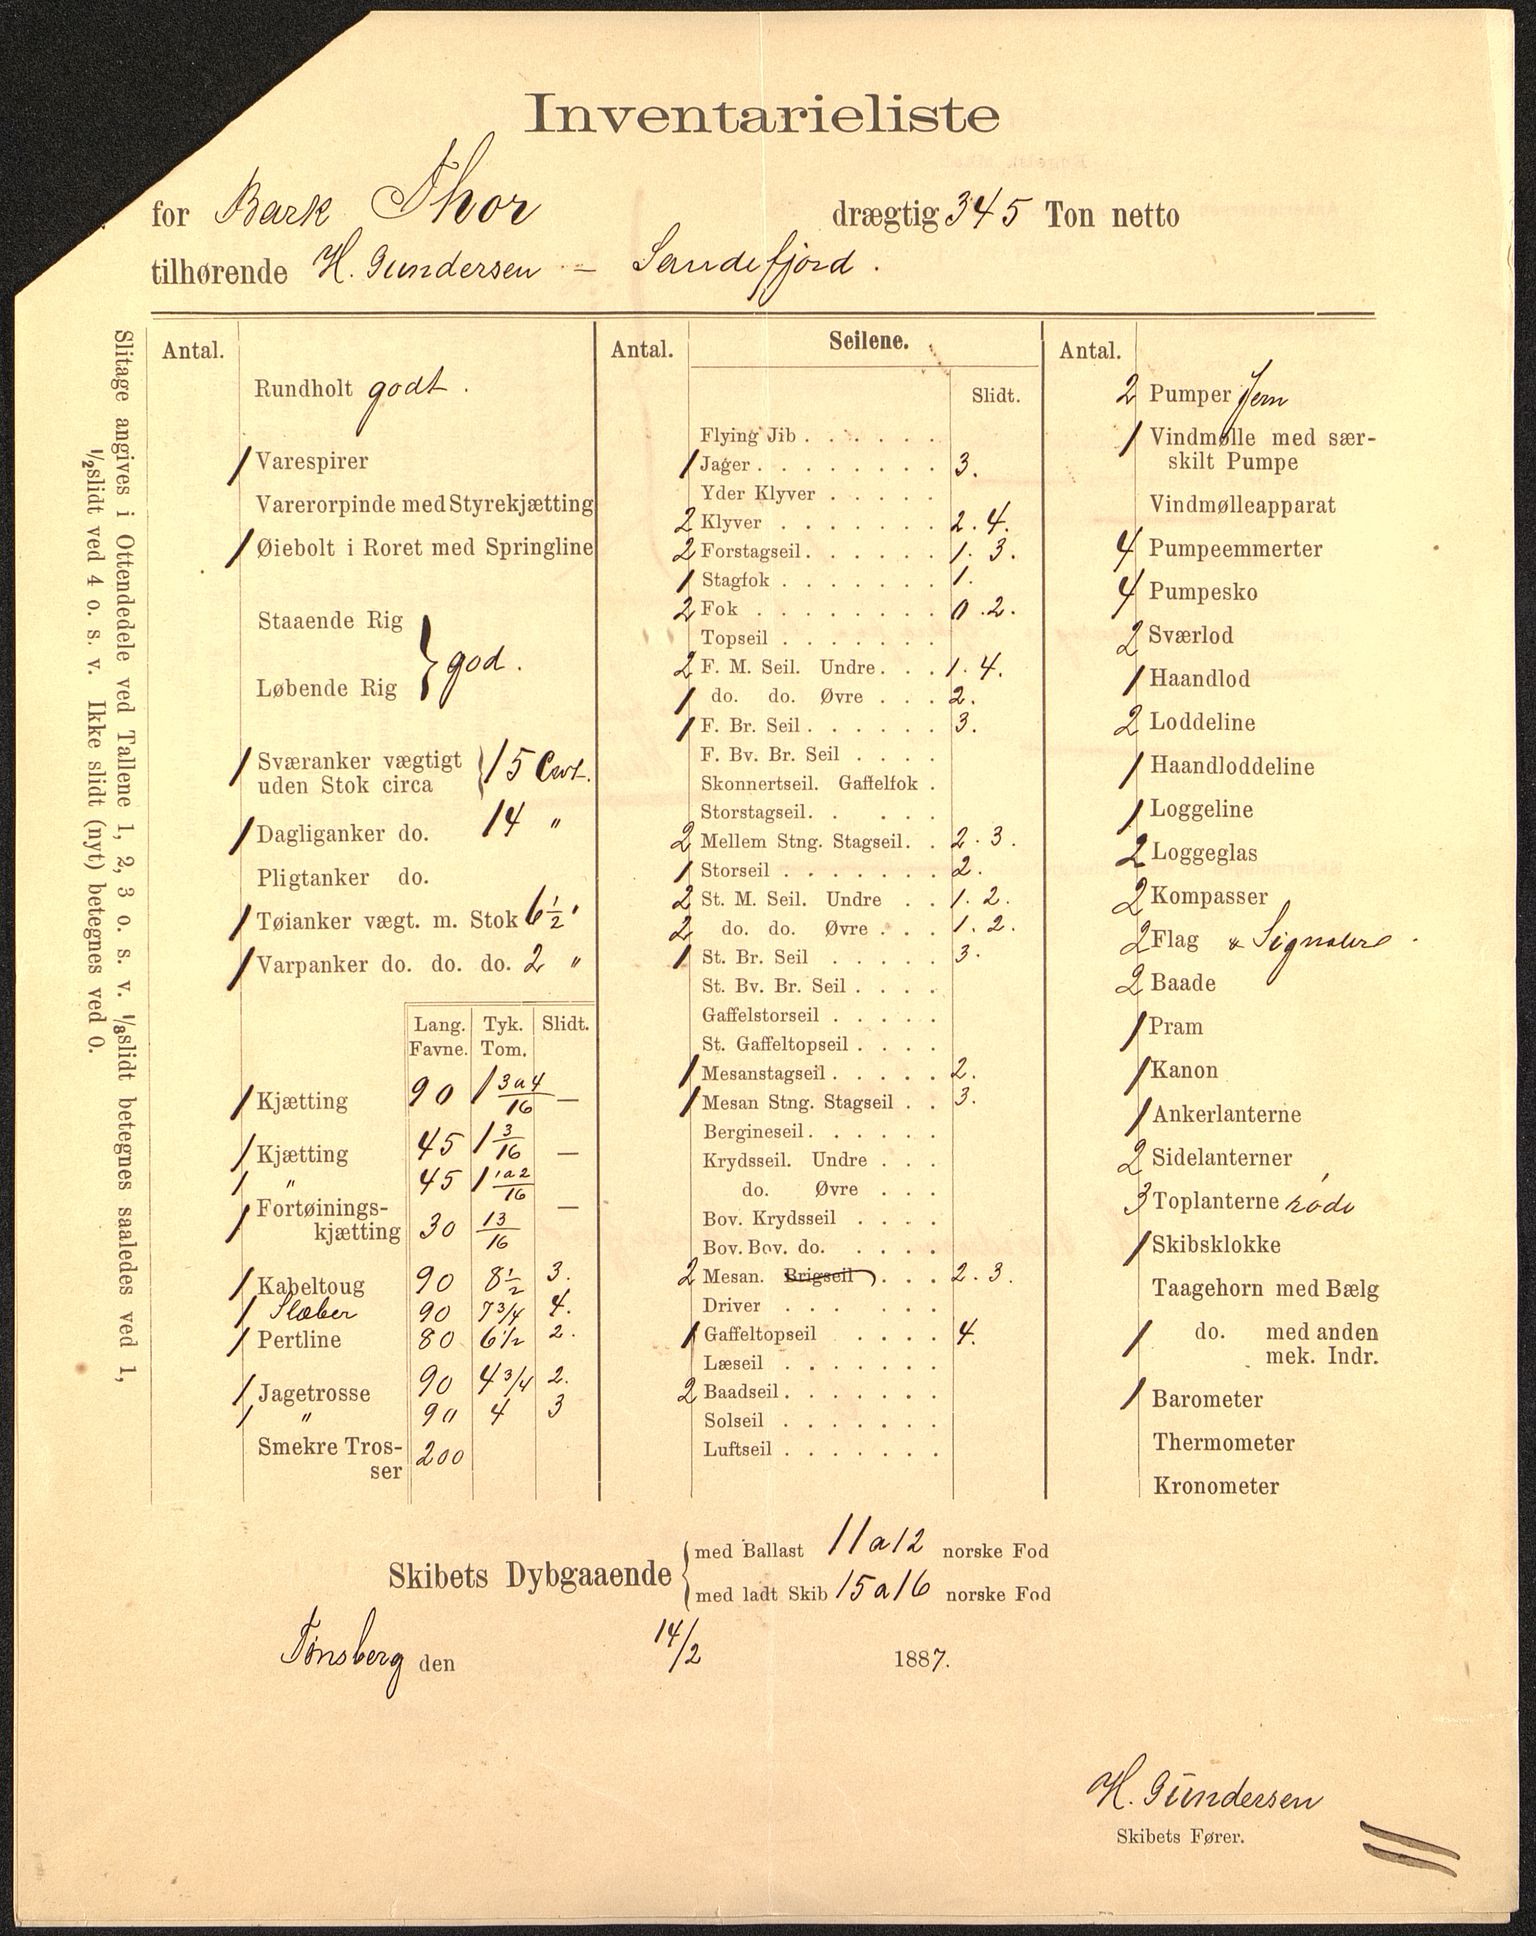 Inventarieliste
for Bark Thor drægtig 345 Ton netto
tilhørende H. Gundersen – Sandefjord.
Slitage angives i Ottendedele ved Tallene 1, 2, 3 o. s. v. 1/8 slidt betegnes saaledes ved 1,
1/2 slidt ved 4 o. s. v. Ikke slidt (nyt) betegnes ved 0.
Antal.
Rundholt godt.
1 Varespirer
Varerorpinde med Styrekjætting
1 Øiebolt i Roret med Springline
Staaende Rig
Løbende Rig } god.
1 Sværanker vægtigt
uden Stok circa } 15 Cwt.
1 Dagliganker do. 14 "
Pligtanker do.
1 Tøianker vægt. m. Stok 6 1/2 "
1 Varpanker do. do. do. 2 "
Lang. Tyk. Slidt.
Favne. Tom.
1 Kjætting 90 1 3 a 4/16 —
1 Kjætting 45 1 3/16 —
1 " 45 1 1 a 2/16
1 Fortøinings- —
kjætting 30 13/16
1 Kabeltoug 90 8 1/2 3.
1 Slæber 90 7 3/4 4.
1 Pertline 80 6 1/2 2.
1 Jagetrosse 90 4 3/4 2.
1 " 90 4 3
Smekre Tros-
ser 200
Antal. Seilene.
Slidt.
Flying Jib . . . . . .
1 Jager . . . . . . . . 3.
Yder Klyver . . . . .
2 Klyver . . . . . . . 2. 4.
2 Forstagseil . . . . . . 1. 3.
1 Stagfok . . . . . . . 1.
2 Fok . . . . . . . . 0. 2.
Topseil . . . . . . .
2 F. M. Seil. Undre . . . 1. 4.
1 do. do. Øvre . . . 2.
1 F. Br. Seil . . . . . . 3.
F. Bv. Br. Seil . . . .
Skonnertseil. Gaffelfok .
Storstagseil . . . . .
2 Mellem Stng. Stagseil . . 2. 3.
1 Storseil . . . . . . . 2.
2 St. M. Seil. Undre . . 1. 2.
2 do. do. Øvre . . . 1. 2.
1 St. Br. Seil . . . . . 3.
St. Bv. Br. Seil . . . .
Gaffelstorseil . . . . .
St. Gaffeltopseil . . . .
1 Mesanstagseil . . . . . 2.
1 Mesan Stng. Stagseil . . 3.
Bergineseil . . . . . .
Krydsseil. Undre . . .
do. Øvre . . .
Bov. Krydsseil . . . .
Bov. Bov. do. . . . .
2 Mesan. Brigseil . . . 2. 3.
Driver . . . . . .
1 Gaffeltopseil . . . . 4.
Læseil . . . . . . .
2 Baadseil . . . . . . .
Solseil . . . . . . .
Luftseil . . . . . . .
Antal.
2 Pumper Jern
1 Vindmølle med sær-
skilt Pumpe
Vindmølleapparat
4 Pumpeemmerter
4 Pumpesko
2 Sværlod
1 Haandlod
2 Loddeline
1 Haandloddeline
1 Loggeline
2 Loggeglas
2 Kompasser
2 Flag & Signalere.
2 Baade
1 Pram
1 Kanon
1 Ankerlanterne
2 Sidelanterner
3 Toplanterne röde
1 Skibsklokke
Taagehorn med Bælg
1 do. med anden
mek. Indr.
1 Barometer
Thermometer
Kronometer
Skibets Dybgaaende { med Ballast 11 a 12 norske Fod
med ladt Skib 15 a 16 norske Fod
Tönsberg den 14/2 1887.
H. Gundersen
Skibets Fører.